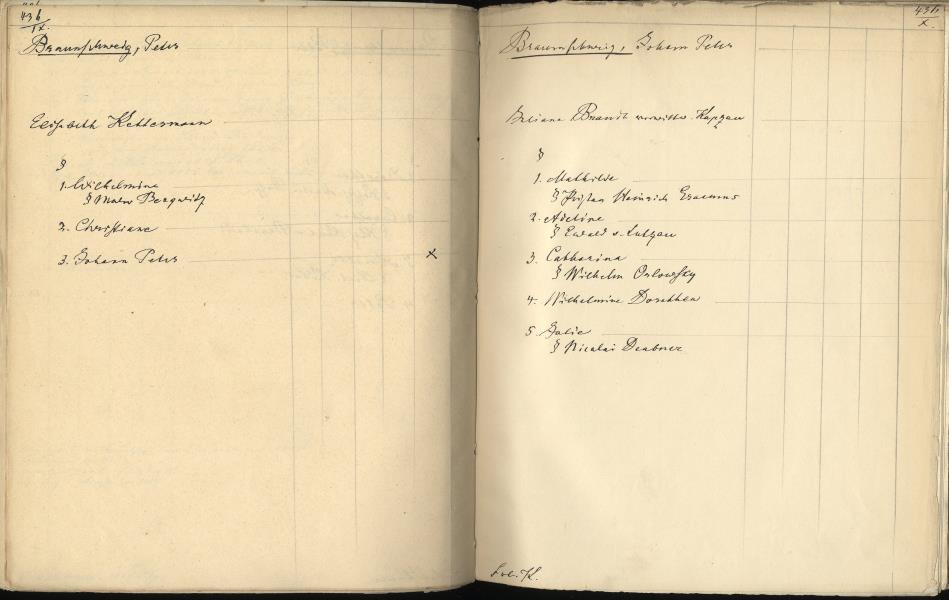 436
IX.
Braunschweig, Peter
Elisabeth Kettermann
§
1. Wilhelmine
§
2. Christiane
3. Johann Peter x
436
X.
Braunschweig, Johann Peter
Juliane Brandt verwittw.
§
1. Mathilde
§ Heinrich
2. Adeline
§ Ewald v.
3. Catharina
§ Wilhelm Orlowsky
4. Wilhelmine Dorothea
5. Julie
§ Nicolai Deubner